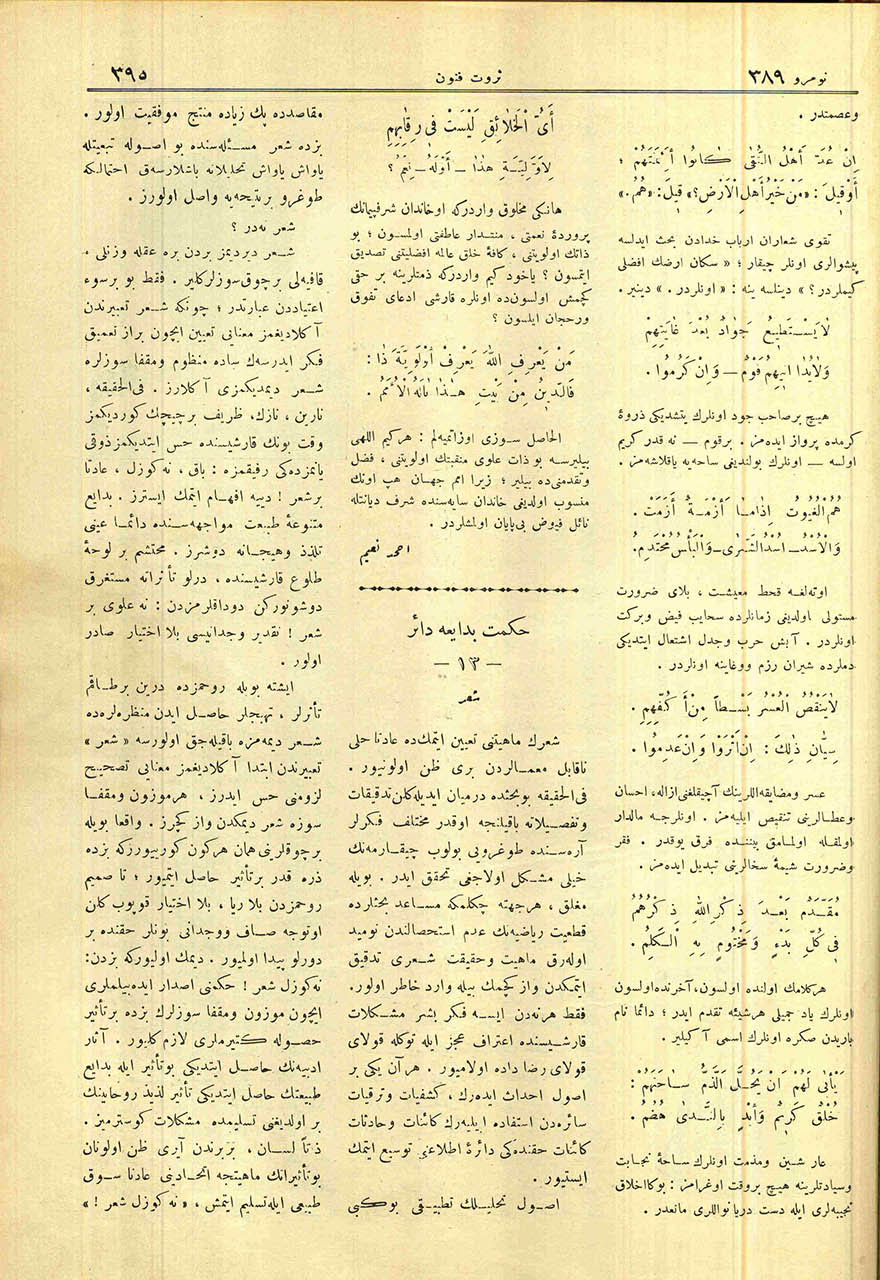 نومرو ٣٨٩
ثروت فنون
٣٩٥
وعصمتدر .
اِنْ عُدَّ اَهْلُ التُّقٰى كَانُوا اَئِمَّتَهُمْ ؛
أَوْقِيلَ : «مَنْ خَيْرُاَهْلِ الْاَرْضِ؟» قِيلَ: «هُمُ.»
تقوى شعاران ارباب خدادن بحث ايدلسه
پيشوالرى اونلر چيقار ؛ « سكان ارضك افضلى
كيملردر؟ » دينلسه ينه : « اونلردر . » دينير .
لَايَسْتَطِيعُ جَوَادٌ بُعْدَ غَايَتِهِمْ
وَلَايُدَانِيهِمُ قَوْمٌ — وَاِنْ كَرُمُوا .
هيچ برصاحب جود اونلرك يتشديكى ذروۀ
كرمده پرواز ايده‌مز . برقوم — نه قدر كريم
اولسه — اونلرك بولنديغى ساحه‌يه ياقلاشه‌مز .
هُمُ الْغُيُوثُ اِذَامَا اَزْمَةٌ اَزَمَتْ .
وَالْاُسْدُ — اُسْدُالشَّرٰى — وَالْبَأْسُ مُحْتَدِمُ .
اوتەلغه قحط معيشت ، بلاى ضرورت
مستولى اولديغى زمانلرده سحايب فيض وبركت
اونلردر . آتش حرب وجدل اشتعال ايتديكى
دملرده شيران رزم ووغاينه اونلردر .
لَايَنْقُصُ الْعُسْرُ بَسْطاً مِنْ اَكُفِّهِمِ .
سِيَّانِ ذٰلِكَ : اِنْ اَثْرَوْا وَاِنْ عَدِمُوا .
عسر ومضايقه‌اللرينك آچيقلغنى ازاله، احسان
وعطالرينى تنقيص ايليه‌مز . اونلرجه مالدار
اولمقله اولمامق بيننده فرق يوقدر . فقر
وضرورت شيمۀ سخالرينى تبديل ايده‌مز .
مُقَدَّمٌ بَعْدَ ذِكْرِ اللهِ ذِكْرُهُمُ
فِى كُلِّ بَدْءٍ وَمَخْتُومٌ بِهِ الْكَلِمُ .
هركلامك اولنده اولسون، آخرنده‌اولسون
اونلرك ياد جميلى هرشيئه تقدم ايدر ؛ دائما نام
باريدن صكره اونلرك اسمى آ كيلير .
يَأْبٰى لَهُمْ اَنْ يَحُلَّ الذَّمُّ سَاحَتَهُمْ :
خُلْقٌ كَرِيمٌ وَاَيْدٍ بِالنَّدٰى هُضُمُ .
عار شين ومذمت اونلرك ساحۀ نجابت
وسيادتلرينه هيچ بروقت اوغرامز : بوكااخلاق
نجيبه‌لرى ايله دست دريانواللرى مانعدر .
أَىُّ الْخَلَائِقِ لَيْسَتْ فِى رِقَابِهِمِ
لِاَوَّلِيَّةِ هٰذَا — اَوْلَهُ — نِعَمُ ؟
هانكى مخلوق واردركه اوخاندان شرفپيمانك
پروردۀ نعمتى ، منتدار عاطفتى اولمسون ؛ بو
ذاتك اولويتنى ، كافۀ خلق عالمه افضليتنى تصديق
ايتمسون ؟ ياخود كيم واردركه ذمتلرينه بر حتى
كچمش اولسون‌ده اونلره قارشى ادعاى تفوق
ورحجان ايلسون ؟
مَنْ يَعْرِفِ اللهَ يَعْرِفْ اَوَّلَوِيَّةَ ذَا :
فَالدِّينُ مِنْ بَيْتِ هٰذَا نَالَهُ الْاُمَمُ .
الحاصل سوزى اوزاتميه‌لم : هركيم اللهى
بيليرسه بو ذات علوى منقبتك اولويتنى ، فضل
وتقدمنى‌ده بيلير ؛ زيرا امم جهان هپ اونك
منسوب اولديغى خاندان سايه‌سنده شرف ديانتله
نائل فيوض بى‌پايان اولمشلردر .
احمد نعيم
حكمت بدايعه دائر
— ١٣ —
شعر
شعرك ماهيتنى تعيين ايتمك‌ده عادتا حلى
ناقابل معمالردن برى ظن اولونيور .
فى‌الحقيقه بوبحثده درميان ايديله‌كلن‌تدقيقات
وتفصيلاته باقيلنجه اوقدر مختلف فكرلر
آره‌سنده طوغرويى بولوب چيقارمه‌نك
خيلى مشكل اولاجغى تحقق ايدر . بويله
مغلق ، هرجهته چكلمكه مساعد بحثلرده
قطعيت رياضيه‌نك عدم استحصالندن نوميد
اوله‌رق ماهيت وحقيقت شعرى تدقيق
ايتمكدن واز كچمك بيله وارد خاطر اولور.
فقط هرنه‌دن ايسه فكر بشر مشكلات
قارشيسنده اعتراف عجز ايله توكله قولاى
قولاى رضا داده اولاميور . هر آن يكى بر
اصول احداث ايده‌رك ، كشفيات وترقيات
سائره‌دن استفاده ايليه‌رك كائنات وحادثات
كائنات حقنده‌كى دائرۀ اطلاعنى توسيع ايتمك
ايستيور .
اصول تحليلك تطبيقى بوكبى
مقاصدده پك زياده منتج موفقيت اولور .
بزده شعر مسئله‌سنده بو اصوله تبعيتله
ياواش ياواش تحليلاته باشلارسه‌ق احتمالكه
طوغرو برنتيجه‌يه واصل اولورز .
شعر نه‌در ؟
شعر ديرديمز بردن بره عقله وزنلى ،
قافيه‌لى برچوق سوزلركلير . فقط بو برسوء
اعتياددن عبارتدر ؛ چونكه شعر تعبيرندن
آ كلاديغمز معنايى تعيين ايچون براز تعميق
فكر ايدرسه‌ك ساده منظوم ومقفا سوزلره
شعر ديمديكمزى آ كلارز . فى‌الحقيقه ،
نارين ، نازك، ظريف برچيچك كورديكمز
وقت بونك قارشيسنده حس ايتديكمزذوقى
يانمزده‌كى رفيقمزه : باق ، نه‌كوزل ، عادتا
برشعر ! دييه افهام ايتمك ايسترز . بدايع
متنوعۀ طبيعت مواجهه‌سنده دائما عينى
تلذذ وهيجانه دوشرز . محتشم بر لوحۀ
طلوع قارشيسنده ، درلو تأثراته مستغرق
دوشونوركن دوداقلرمزدن : نه علوى بر
شعر ! تقدير وجدانيسى بلا اختيار صادر
اولور .
ايشته بويله روحمزده درين برطاقم
تأثرلر ، تهيجلر حاصل ايدن منظره‌لره‌ده
شعر ديمه‌مزه باقيله‌جق اولورسه « شعر »
تعبيرندن ابتدا آ كلاديغمز معنايى تصحيح
لزومنى حس ايدرز ، هرموزون ومقفا
سوزه شعر ديمكدن واز كچرز . واقعا بويله
برچوقلرينى همان هركون كوريبورزكه بزده
ذره قدر برتأثير حاصل ايتميور ؛ تا صميم
روحمزدن بلا ريا ، بلا اختيار قوپوب كلن
اوتوجه صاف ووجدانى بونلر حقنده بر
دورلو پيدا اولميور . ديمك اوليوركه بزدن:
نه‌كوزل شعر ! حكمنى اصدار ايده‌بيلملرى
ايچون موزون ومقفا سوزلرك بزده برتأثير
حصوله كتيرملرى لازم كليور . آثار
ادبيه‌نك حاصل ايتديكى بوتأثير ايله بدايع
طبيعتك حاصل ايتديكى تأثير لذيذ روحانينك
بر اولديغنى تسليمده مشكلات كوسترميز .
ذتاً لسان ، بربرندن آيرى ظن اولونان
بوتأثيراتك ماهيتجه اتحادينى عادتا سوق
طبيعى ايله‌تسليم ايتمش ، « نه كوزل شعر ! »